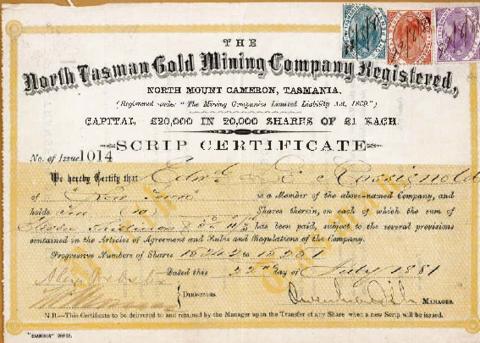 THE
North Tasman Gold Mining Company Registered,
NORTH MOUNT CAMERON, TASMANIA.
(Registered under "The Mining Companies Limited Liability Act, 1869.")
CAPITAL £20,000 IN 20,000 SHARES OF £1 EACH.
SCRIP CERTIFICATE
No. of Issue 1014
We hereby Certify that Edwd
of New Town is a Member of the above-named Company, and
holds Ten Shares therein, on each of which the sum of
has been paid, subject to the several provisions
contained in the Articles of Agreement and Rules and Regulations of the Company.
Progressive Numbers of Shares 15242 to 15251
Dated this 22nd day of July 1881
DIRECTORS.
MANAGER.
N.B.—This Certificate to be delivered to and retained by the Manager upon the Transfer of any Share when a new Scrip will be issued.
"EXAMINER" OFFICE.